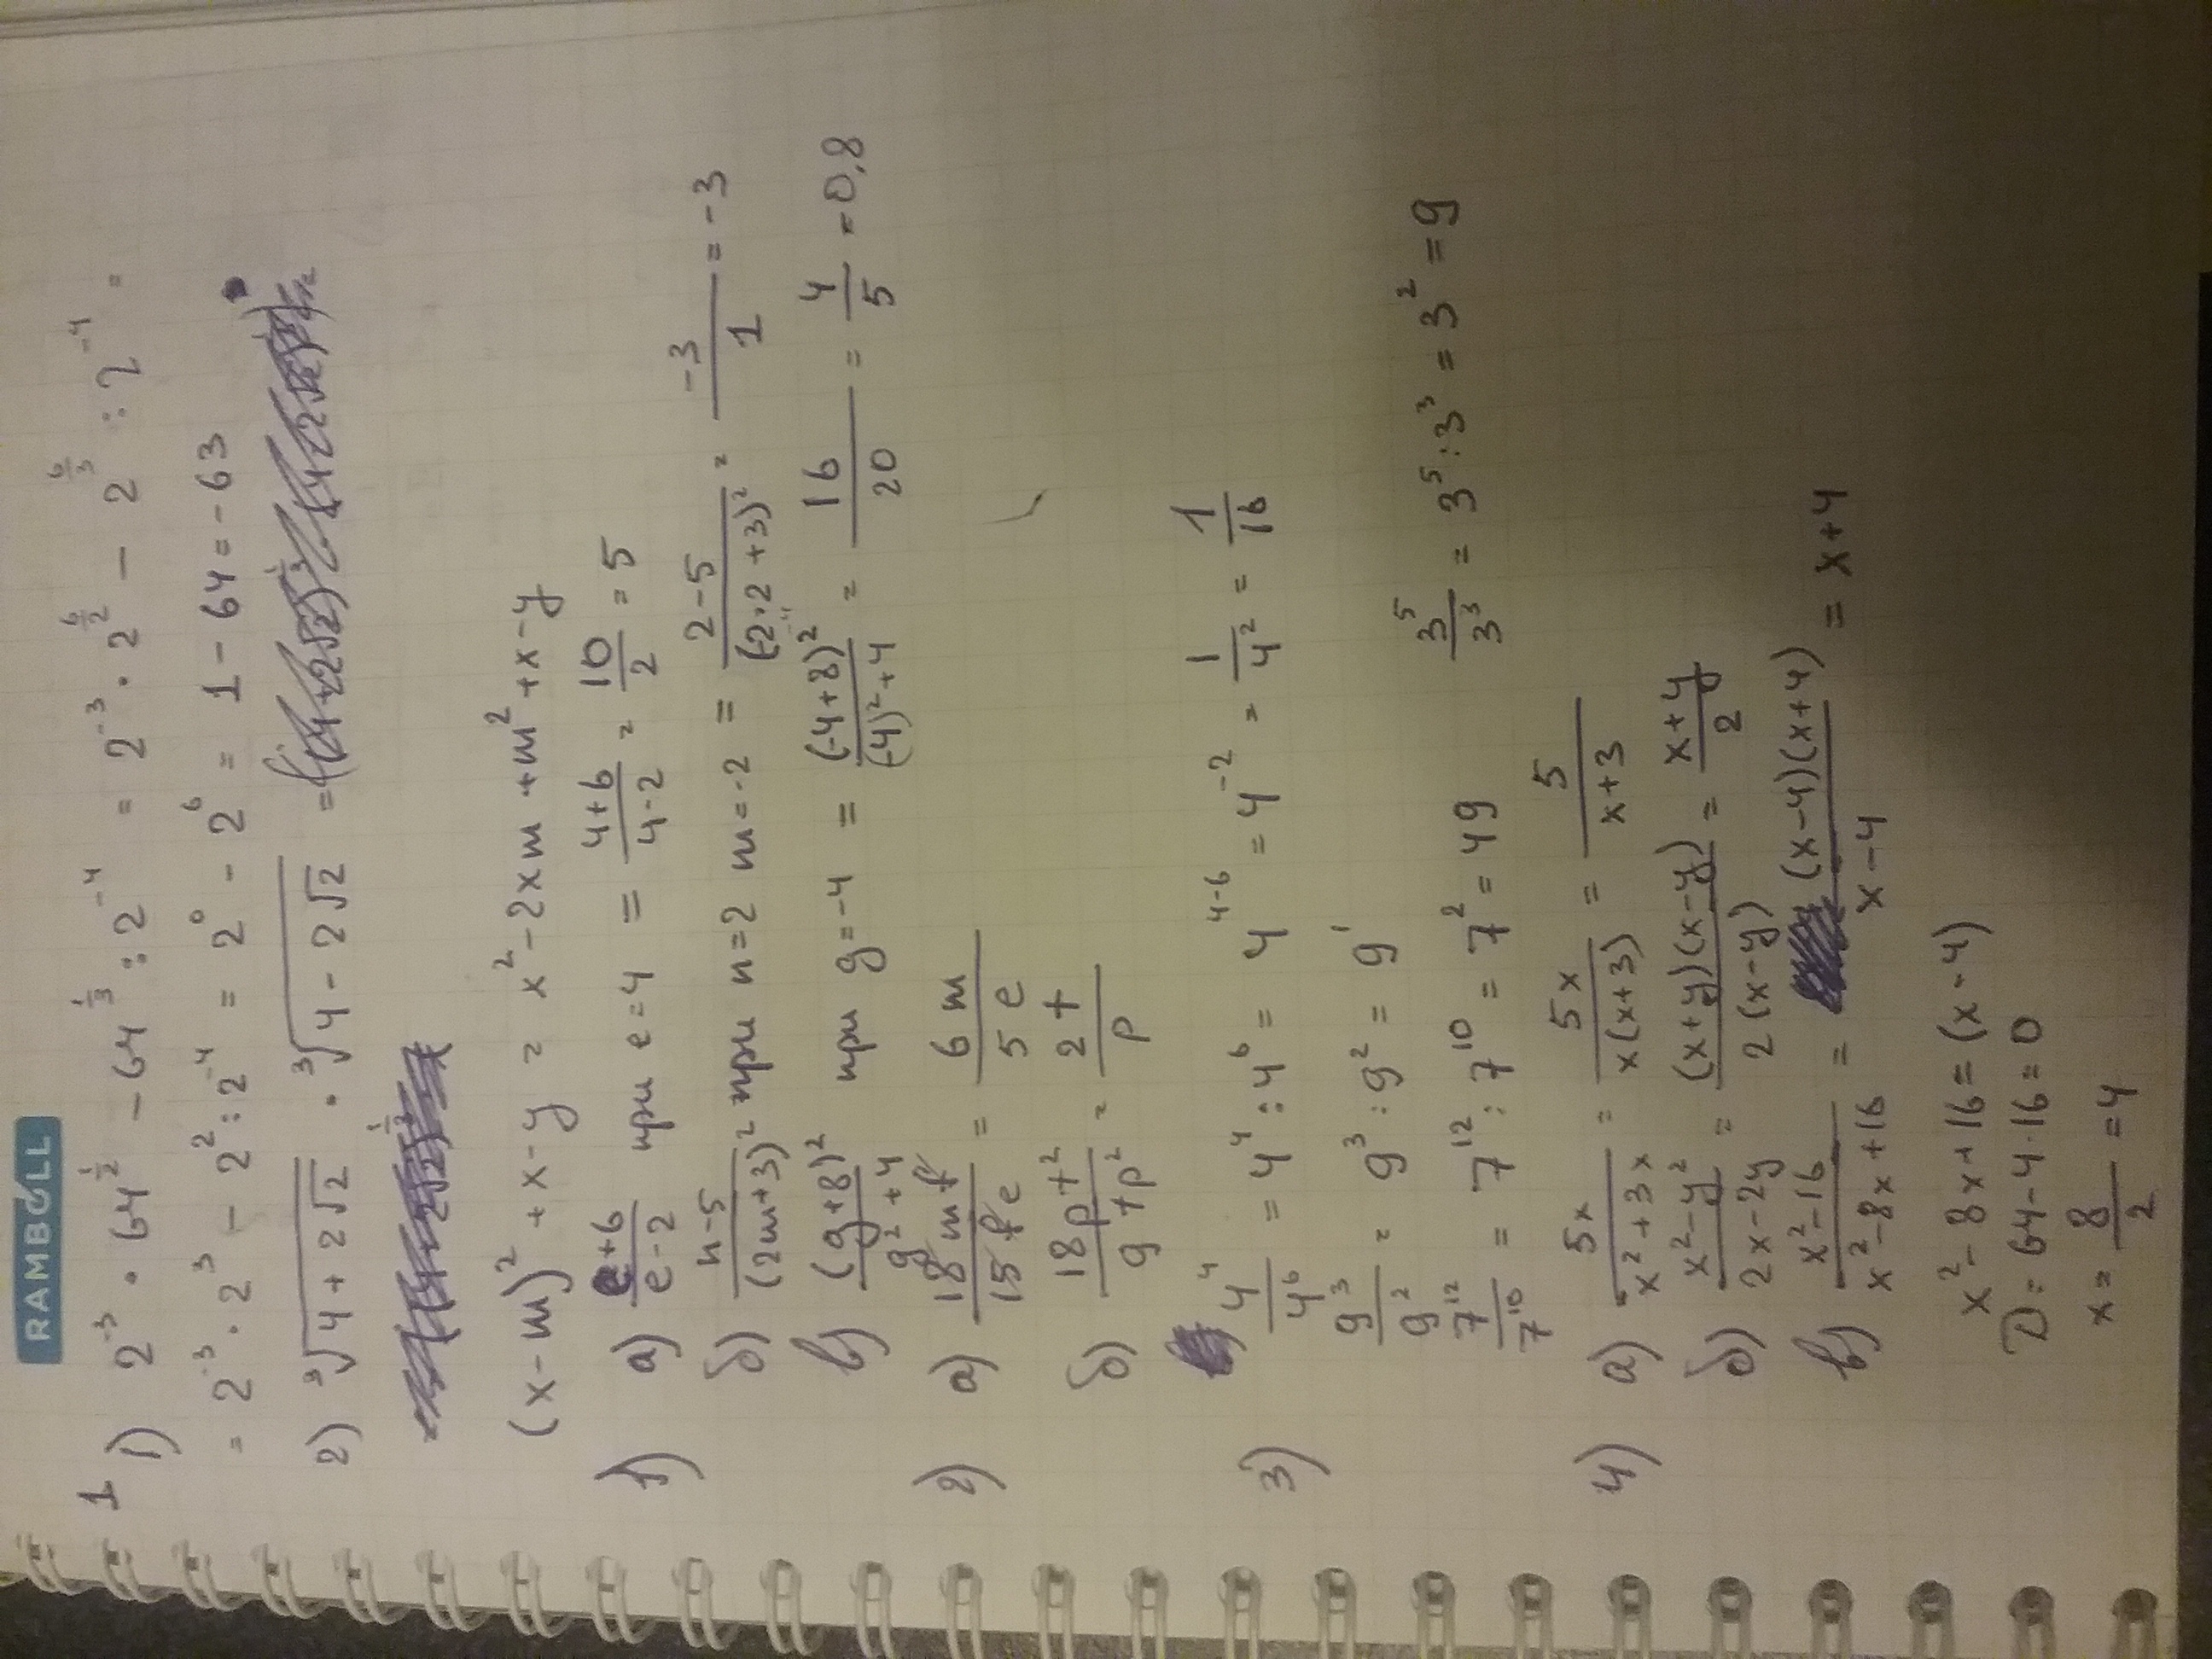 RAMBOLL
1 1) 2⁻³ · 64^(1/2) − 64^(1/3) : 2⁻⁴ = 2⁻³ · 2^(6/2) − 2^(6/3) : 2⁻⁴ =
= 2⁻³ · 2³ − 2² : 2⁻⁴ = 2⁰ − 2⁶ = 1 − 64 = −63
2) ³√(4 + 2√2) · ³√(4 − 2√2) =
(x − m)² + x − y = x² − 2xm + m² + x − y
1) а) (e+6)/(e−2) при e = 4 = (4+6)/(4−2) = 10/2 = 5
б) (n−5)/(2m+3)² при n=2 m=−2 = (2−5)/(−2·2+3)² = −3/1 = −3
в) (g+8)²/(g²+4) при g=−4 = (−4+8)²/((−4)²+4) = 16/20 = 4/5 = 0,8
2) а) 18mf/15fe = 6m/5e
б) 18pt²/9tp² = 2t/p
3) 4⁴/4⁶ = 4⁴ : 4⁶ = 4⁴⁻⁶ = 4⁻² = 1/4² = 1/16
9³/9² = 9³ : 9² = 9¹
7¹²/7¹⁰ = 7¹² : 7¹⁰ = 7² = 49
3⁵/3³ = 3⁵ : 3³ = 3² = 9
4) а) 5x/(x²+3x) = 5x/(x(x+3)) = 5/(x+3)
б) (x²−y²)/(2x−2y) = (x+y)(x−y)/(2(x−y)) = (x+y)/2
в) (x²−16)/(x²−8x+16) = (x−4)(x+4)/(x−4) = x+4
x² − 8x + 16 = (x − 4)
D = 64 − 4·16 = 0
x = 8/2 = 4